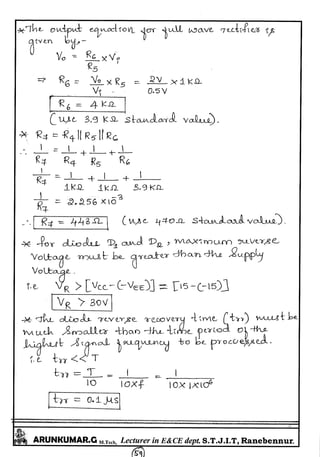 * The output equation for full wave rectifier is
given by,-
Vo = R6/R5 x V1
⇒ R6 = Vo/V1 x R5 = 2V/0.5V x 1kΩ
R6 = 4 kΩ
(use 3.9 kΩ standard value).
* R7 = R4 || R5 || R6
∴ 1/R7 = 1/R4 + 1/R5 + 1/R6
1/R7 = 1/1kΩ + 1/1kΩ + 1/3.9kΩ
1/R7 = 2.256 x10³
∴ R7 = 443Ω (use 470Ω standard value).
* For diodes D1 and D2, maximum reverse
Voltage must be greater than the Supply
Voltage.
i.e VR > [VCC-(-VEE)] = [15-(-15)]
VR > 30V
* The diode reverse recovery time (trr) must be
much smaller than the time period of the
highest signal frequency to be processed.
i.e trr << T
trr = T/10 = 1/10xf = 1/10x1x10⁶
trr = 0.1 μs
ARUNKUMAR.G M.Tech, Lecturer in E&CE dept. S.T.J.I.T, Ranebennur.
59